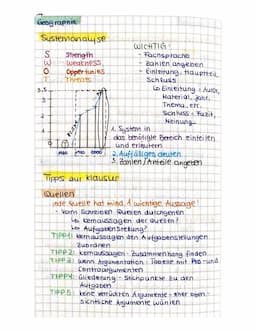 Geographie
Systemanalyse
S Strength
W Weakness
O Opportunities
T Threats
WICHTIG:
- Fachsprache
- Zahlen angeben
- Einleitung, Hauptteil,
Schluss
↳ Einleitung: Autor,
Material, Jahr,
Thema, etc.
Schluss: Fazit,
Meinung
1. System in
das benötigte Bereich einteilen
und erläutern
2. Auffälliges deuten
3. Zahlen/Anteile angeben
Tipps zur Klausur
Quellen
Jede Quelle hat mind. 1 wichtige Aussage!
- vorm Schreiben Quellen durchgehen
↳ Kernaussagen der Quellen?
↳ Aufgabenstellung?
TIPP 1: Kernaussagen den Aufgabenstellungen
zuordnen
TIPP 2: Kernaussagen - Zusammenhang finden
TIPP 3: Bei Argumentation: Tabelle mit Pro- und
Contraargumenten
TIPP 4: Gliederung - Stichpunkte zu den
Aufgaben
TIPP 5: keine verrückten Argumente - eher offen-
sichtliche Argumente wählen